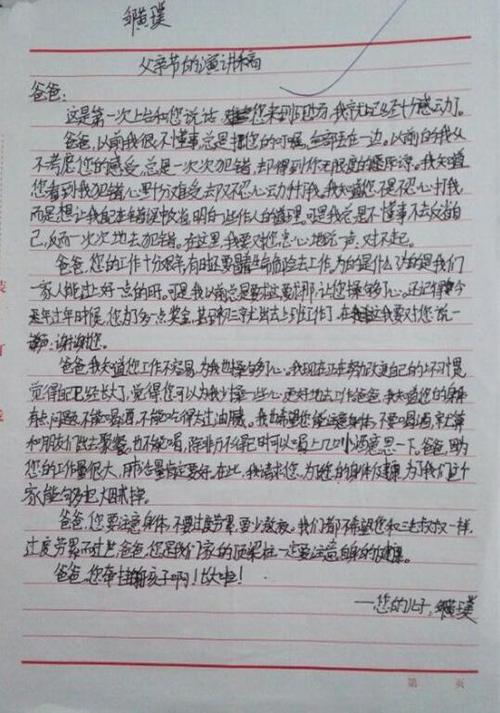 邹黄璞
父亲节的演讲稿
爸爸:
这是第一次上台和您说话,您来到现场,我就已经十分感动了。
爸爸,以前我很不懂事,总是把您的叮嘱,全部丢在一边。以前的我从
不考虑您的感受,总是一次次犯错,却得到你无限度的原谅。我知道
您看到我犯错心里十分难受,去又不忍心动手打我。我知道您不是不忍心打我,
而是想让我自己在错误中改省,明白一些作人的道理。可是我总是不懂事不去反省自
己,反而一次次地去犯错。在这里,我要对您忠心地说一声:对不起。
爸爸,您的工作十分艰辛,有时还要冒着生命危险去工作。为的是什么?为的是我们
一家人能过上好一点的日子。可是我以前总是,让您操够了心。还记得今
年过年时候,您为了多一点奖金,初三就出去上班工作了。在我要对您说一
声:谢谢您。
爸爸,我知道您工作不容易,为我也操够了心。我现在正在努力改更自己的坏习惯,
觉得自己已经长大了,觉得您可以为我少操一些心,更好地去工作。爸爸,我知道您的身体
有点问题,不能喝酒,不能吃得太过油腻。我也希望您能注意身体,不要喝酒,就算
和朋友们出去聚餐,也不能喝,除非万不得已时可以喝上几口小酒意思一下。爸爸,因为
您的工作量很大,用药量肯定要好。在此,我请求您,为了您的身体健康,为了我们这个
家,能够多把烟来掉。
爸爸,您要注意身体,不要过度劳累,要少熬夜。我们都不希望您和三叔叔一样,
过度劳累而过世。爸爸,您是我们家的顶梁柱,一定要注意自身的健康。
爸爸,您牵挂的孩子啊!长大啦!
——您的儿子,邹黄璞
第 页